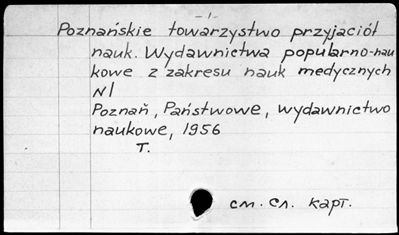 - 1 -
Poznańskie towarzystwo przyjaciół
nauk. Wydawnictwa popularno-nau
kowe z zakresu nauk medycznych
N1
Poznań, Państwowe, wydawnictwo
naukowe, 1956
T.
см. сл. карт.